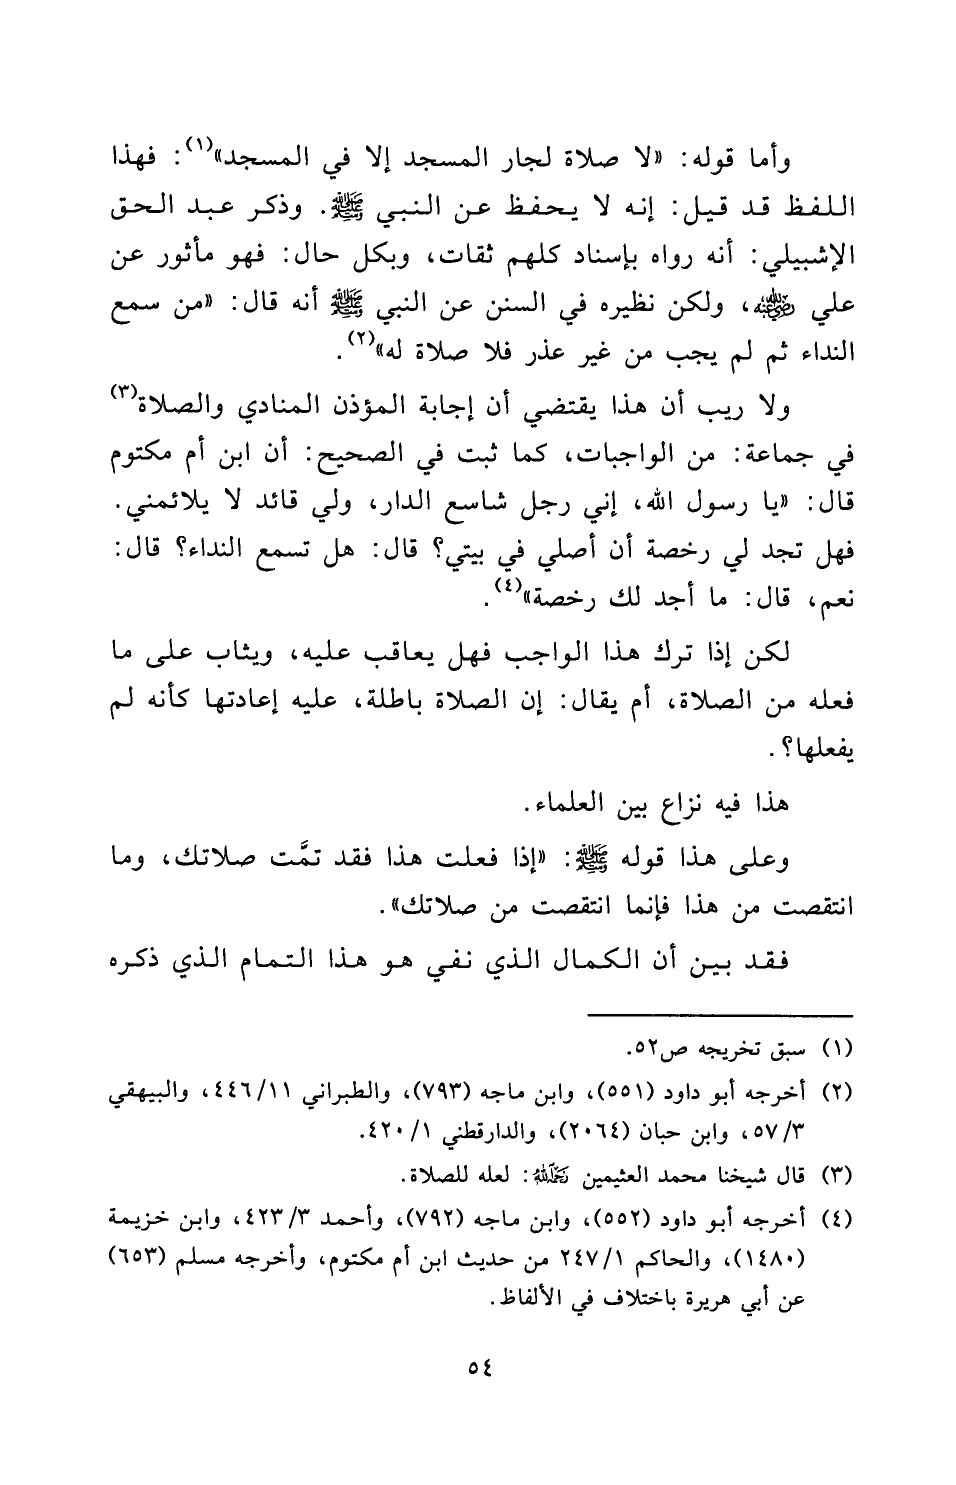 وأما قوله: «لا صلاة لجار المسجد إلا في المسجد»(١): فهذا
اللفظ قد قيل: إنه لا يحفظ عن النبي ﷺ. وذكر عبد الحق
الإشبيلي: أنه رواه بإسناد كلهم ثقات، وبكل حال: فهو مأثور عن
علي رضي الله عنه، ولكن نظيره في السنن عن النبي ﷺ أنه قال: «من سمع
النداء ثم لم يجب من غير عذر فلا صلاة له»(٢).
ولا ريب أن هذا يقتضي أن إجابة المؤذن المنادي والصلاة(٣)
في جماعة: من الواجبات، كما ثبت في الصحيح: أن ابن أم مكتوم
قال: «يا رسول الله، إني رجل شاسع الدار، ولي قائد لا يلائمني.
فهل تجد لي رخصة أن أصلي في بيتي؟ قال: هل تسمع النداء؟ قال:
نعم، قال: ما أجد لك رخصة»(٤).
لكن إذا ترك هذا الواجب فهل يعاقب عليه، ويثاب على ما
فعله من الصلاة، أم يقال: إن الصلاة باطلة، عليه إعادتها كأنه لم
يفعلها؟.
هذا فيه نزاع بين العلماء.
وعلى هذا قوله ﷺ: «إذا فعلت هذا فقد تمَّت صلاتك، وما
انتقصت من هذا فإنما انتقصت من صلاتك».
فقد بين أن الكمال الذي نفي هو هذا التمام الذي ذكره
(١) سبق تخريجه ص٥٢.
(٢) أخرجه أبو داود (٥٥١)، وابن ماجه (٧٩٣)، والطبراني ٤٤٦/١١، والبيهقي
٥٧/٣، وابن حبان (٢٠٦٤)، والدارقطني ٤٢٠/١.
(٣) قال شيخنا محمد العثيمين رحمه الله: لعله للصلاة.
(٤) أخرجه أبو داود (٥٥٢)، وابن ماجه (٧٩٢)، وأحمد ٤٢٣/٣، وابن خزيمة
(١٤٨٠)، والحاكم ٢٤٧/١ من حديث ابن أم مكتوم، وأخرجه مسلم (٦٥٣)
عن أبي هريرة باختلاف في الألفاظ.
٥٤